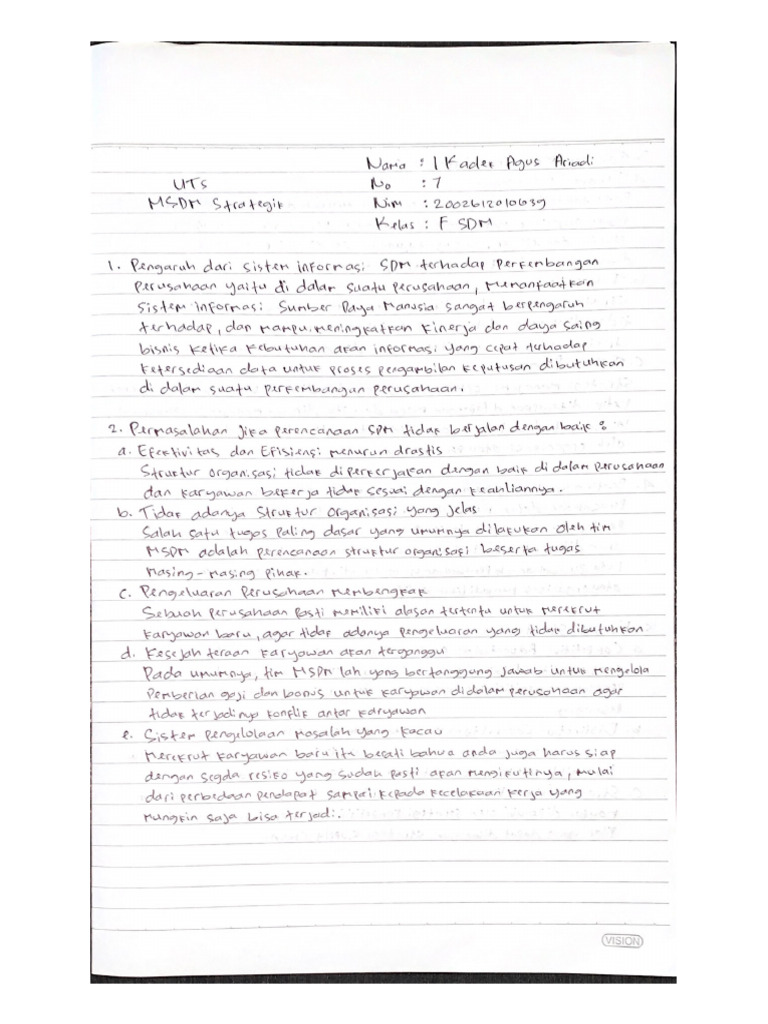 Nama : I Kadek Agus Ariadi
UTS No : 7
MSDM Strategik Nim : 2002612010639
Kelas : F SDM
1. Pengaruh dari sistem informasi SDM terhadap perkembangan
perusahaan yaitu di dalam suatu perusahaan, memanfaatkan
sistem informasi Sumber Daya Manusia sangat berpengaruh
terhadap, dan mampu meningkatkan kinerja dan daya saing
bisnis ketika kebutuhan akan informasi yang cepat terhadap
ketersediaan data untuk proses pengambilan keputusan dibutuhkan
di dalam suatu perkembangan perusahaan.
2. Permasalahan jika perencanaan SDM tidak berjalan dengan baik :
a. Efektivitas dan Efisiensi menurun drastis
Struktur organisasi tidak diperkerjakan dengan baik di dalam perusahaan
dan karyawan bekerja tidak sesuai dengan keahliannya.
b. Tidak adanya Struktur Organisasi yang jelas
Salah satu tugas paling dasar yang umumnya dilakukan oleh tim
MSDM adalah perencanaan struktur organisasi beserta tugas
masing-masing pihak.
c. Pengeluaran Perusahaan Membengkak
Sebuah perusahaan pasti memiliki alasan tertentu untuk merekrut
karyawan baru, agar tidak adanya pengeluaran yang tidak dibutuhkan
d. Kesejahteraan karyawan akan terganggu
Pada umumnya, tim MSDM lah yang bertanggung jawab untuk mengelola
pemberian gaji dan bonus untuk karyawan didalam perusahaan agar
tidak terjadinya konflik antar karyawan
e. Sistem pengelolaan masalah yang kacau
Merekrut karyawan baru itu berati bahwa anda juga harus siap
dengan segala resiko yang sudah pasti akan mengikutinya, mulai
dari perbedaan pendapat sampai kepada kecelakaan kerja yang
mungkin saja bisa terjadi.
VISION